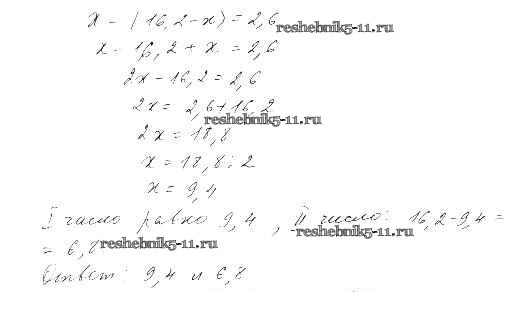 x - (16,2-x) = 2,6
reshebnik5-11.ru
x - 16,2 + x = 2,6
2x - 16,2 = 2,6
2x = 2,6+16,2
reshebnik5-11.ru
2x = 18,8
x = 18,8 : 2
x = 9,4
I число равно 9,4 , II число: 16,2-9,4 =
reshebnik5-11.ru
= 6,8
reshebnik5-11.ru
Ответ: 9,4 и 6,8